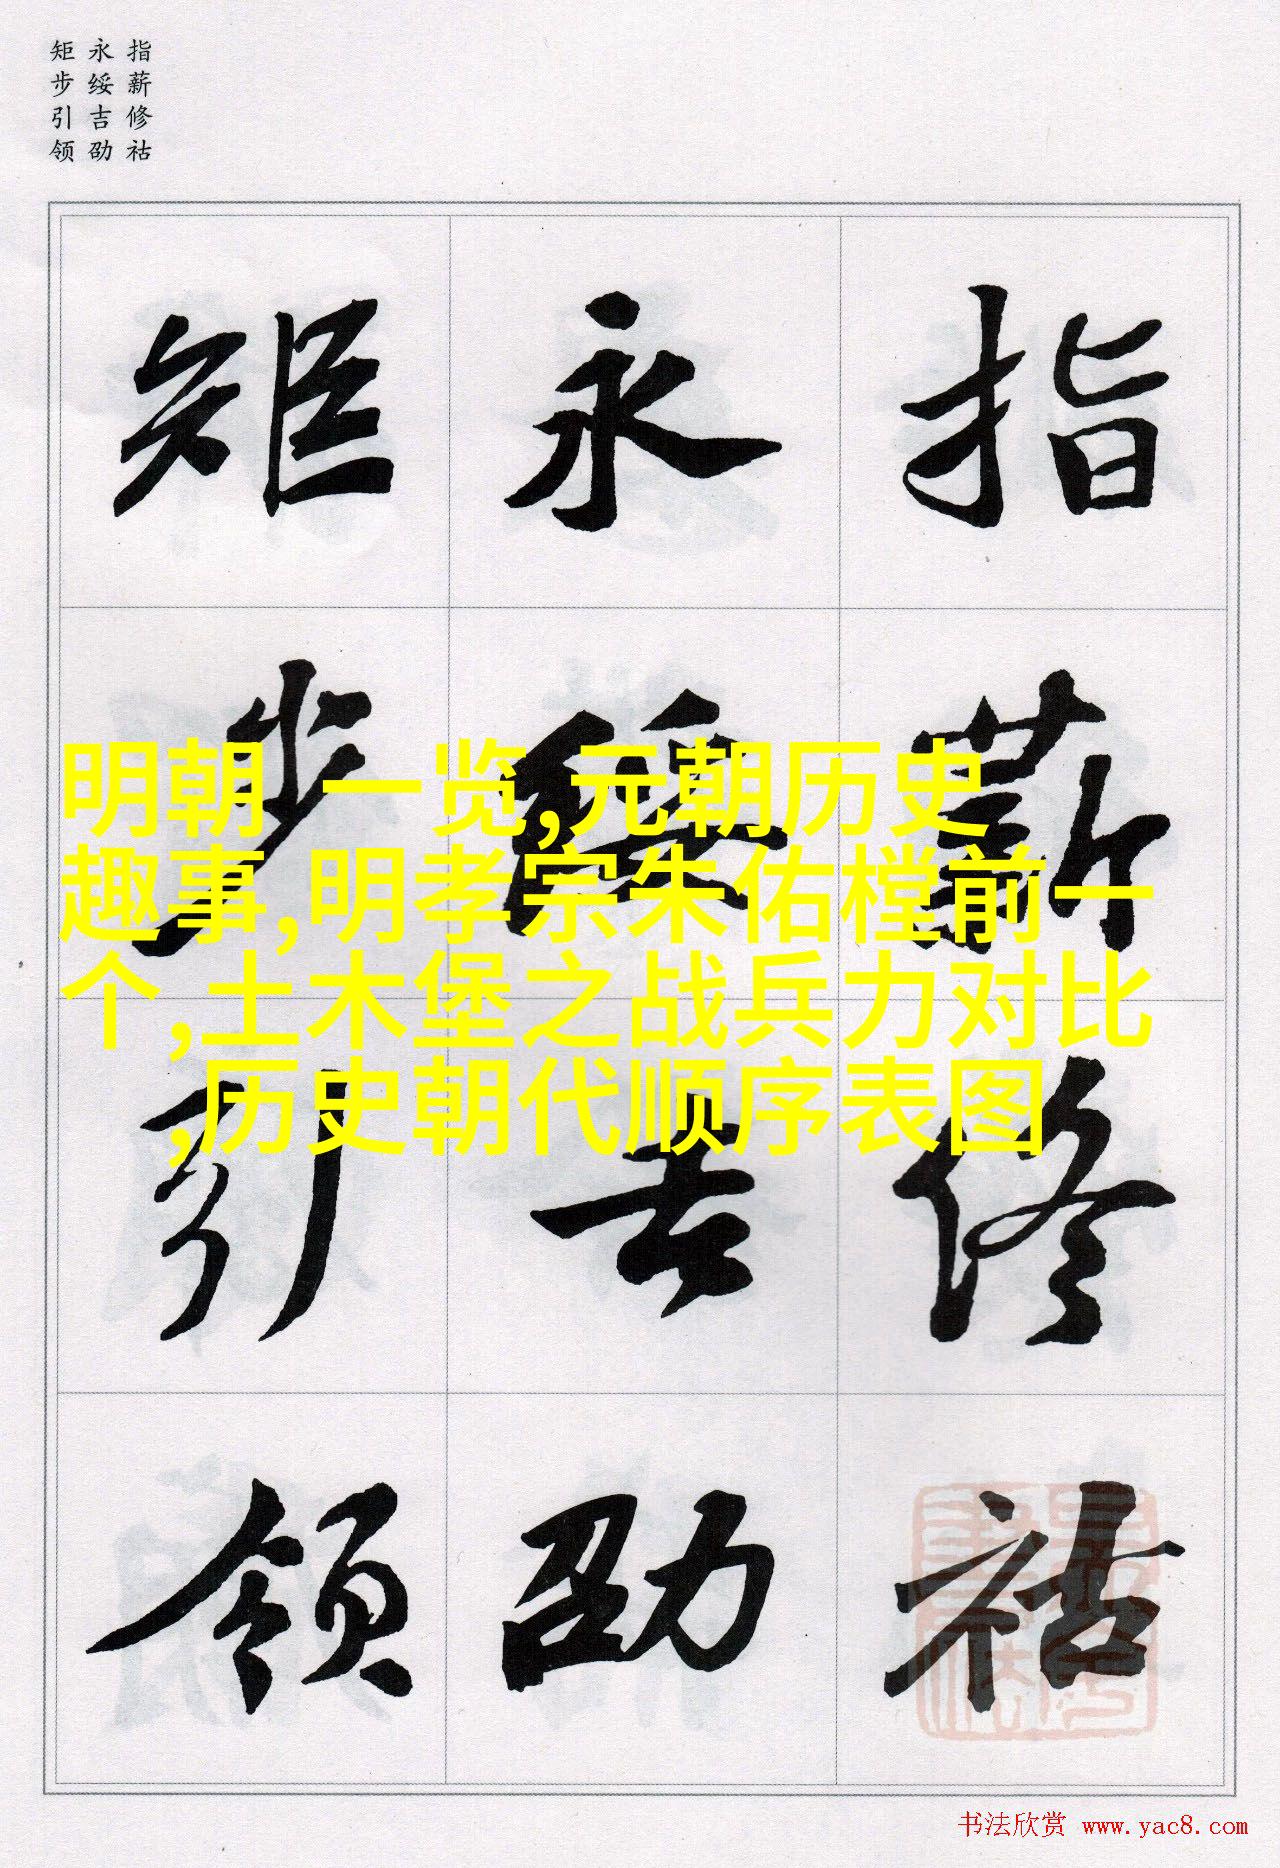 指薪修祜
永绥吉劭
矩步引领
指薪修祜
永绥吉劭
矩步引领
明朝 一览,元朝历史
趣事,明孝宗朱佑樘前一
个,土木堡之战兵力对比
,历史朝代顺序表图
书法欣赏 www.yac8.com